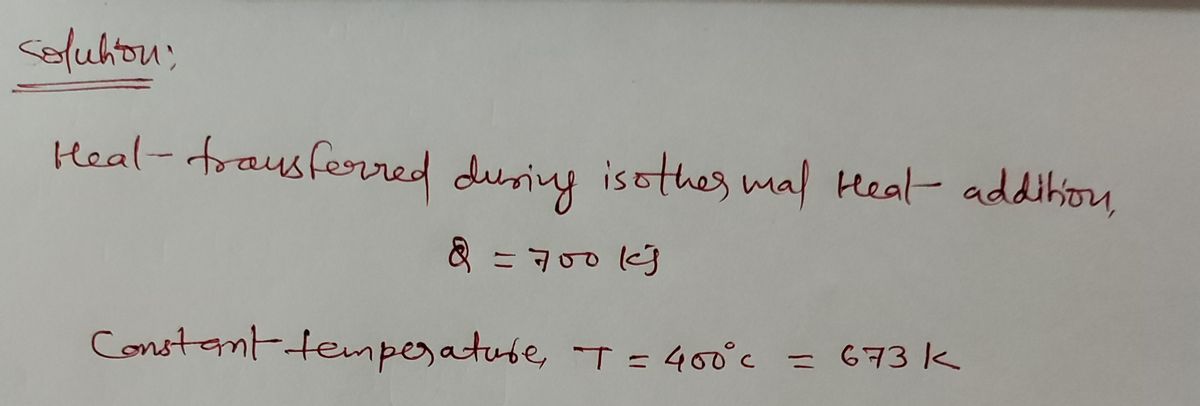 Solution:
Heat transferred during isothermal Heat addition,
Q = 700 kJ
Constant temperature, T = 400°c = 673 K